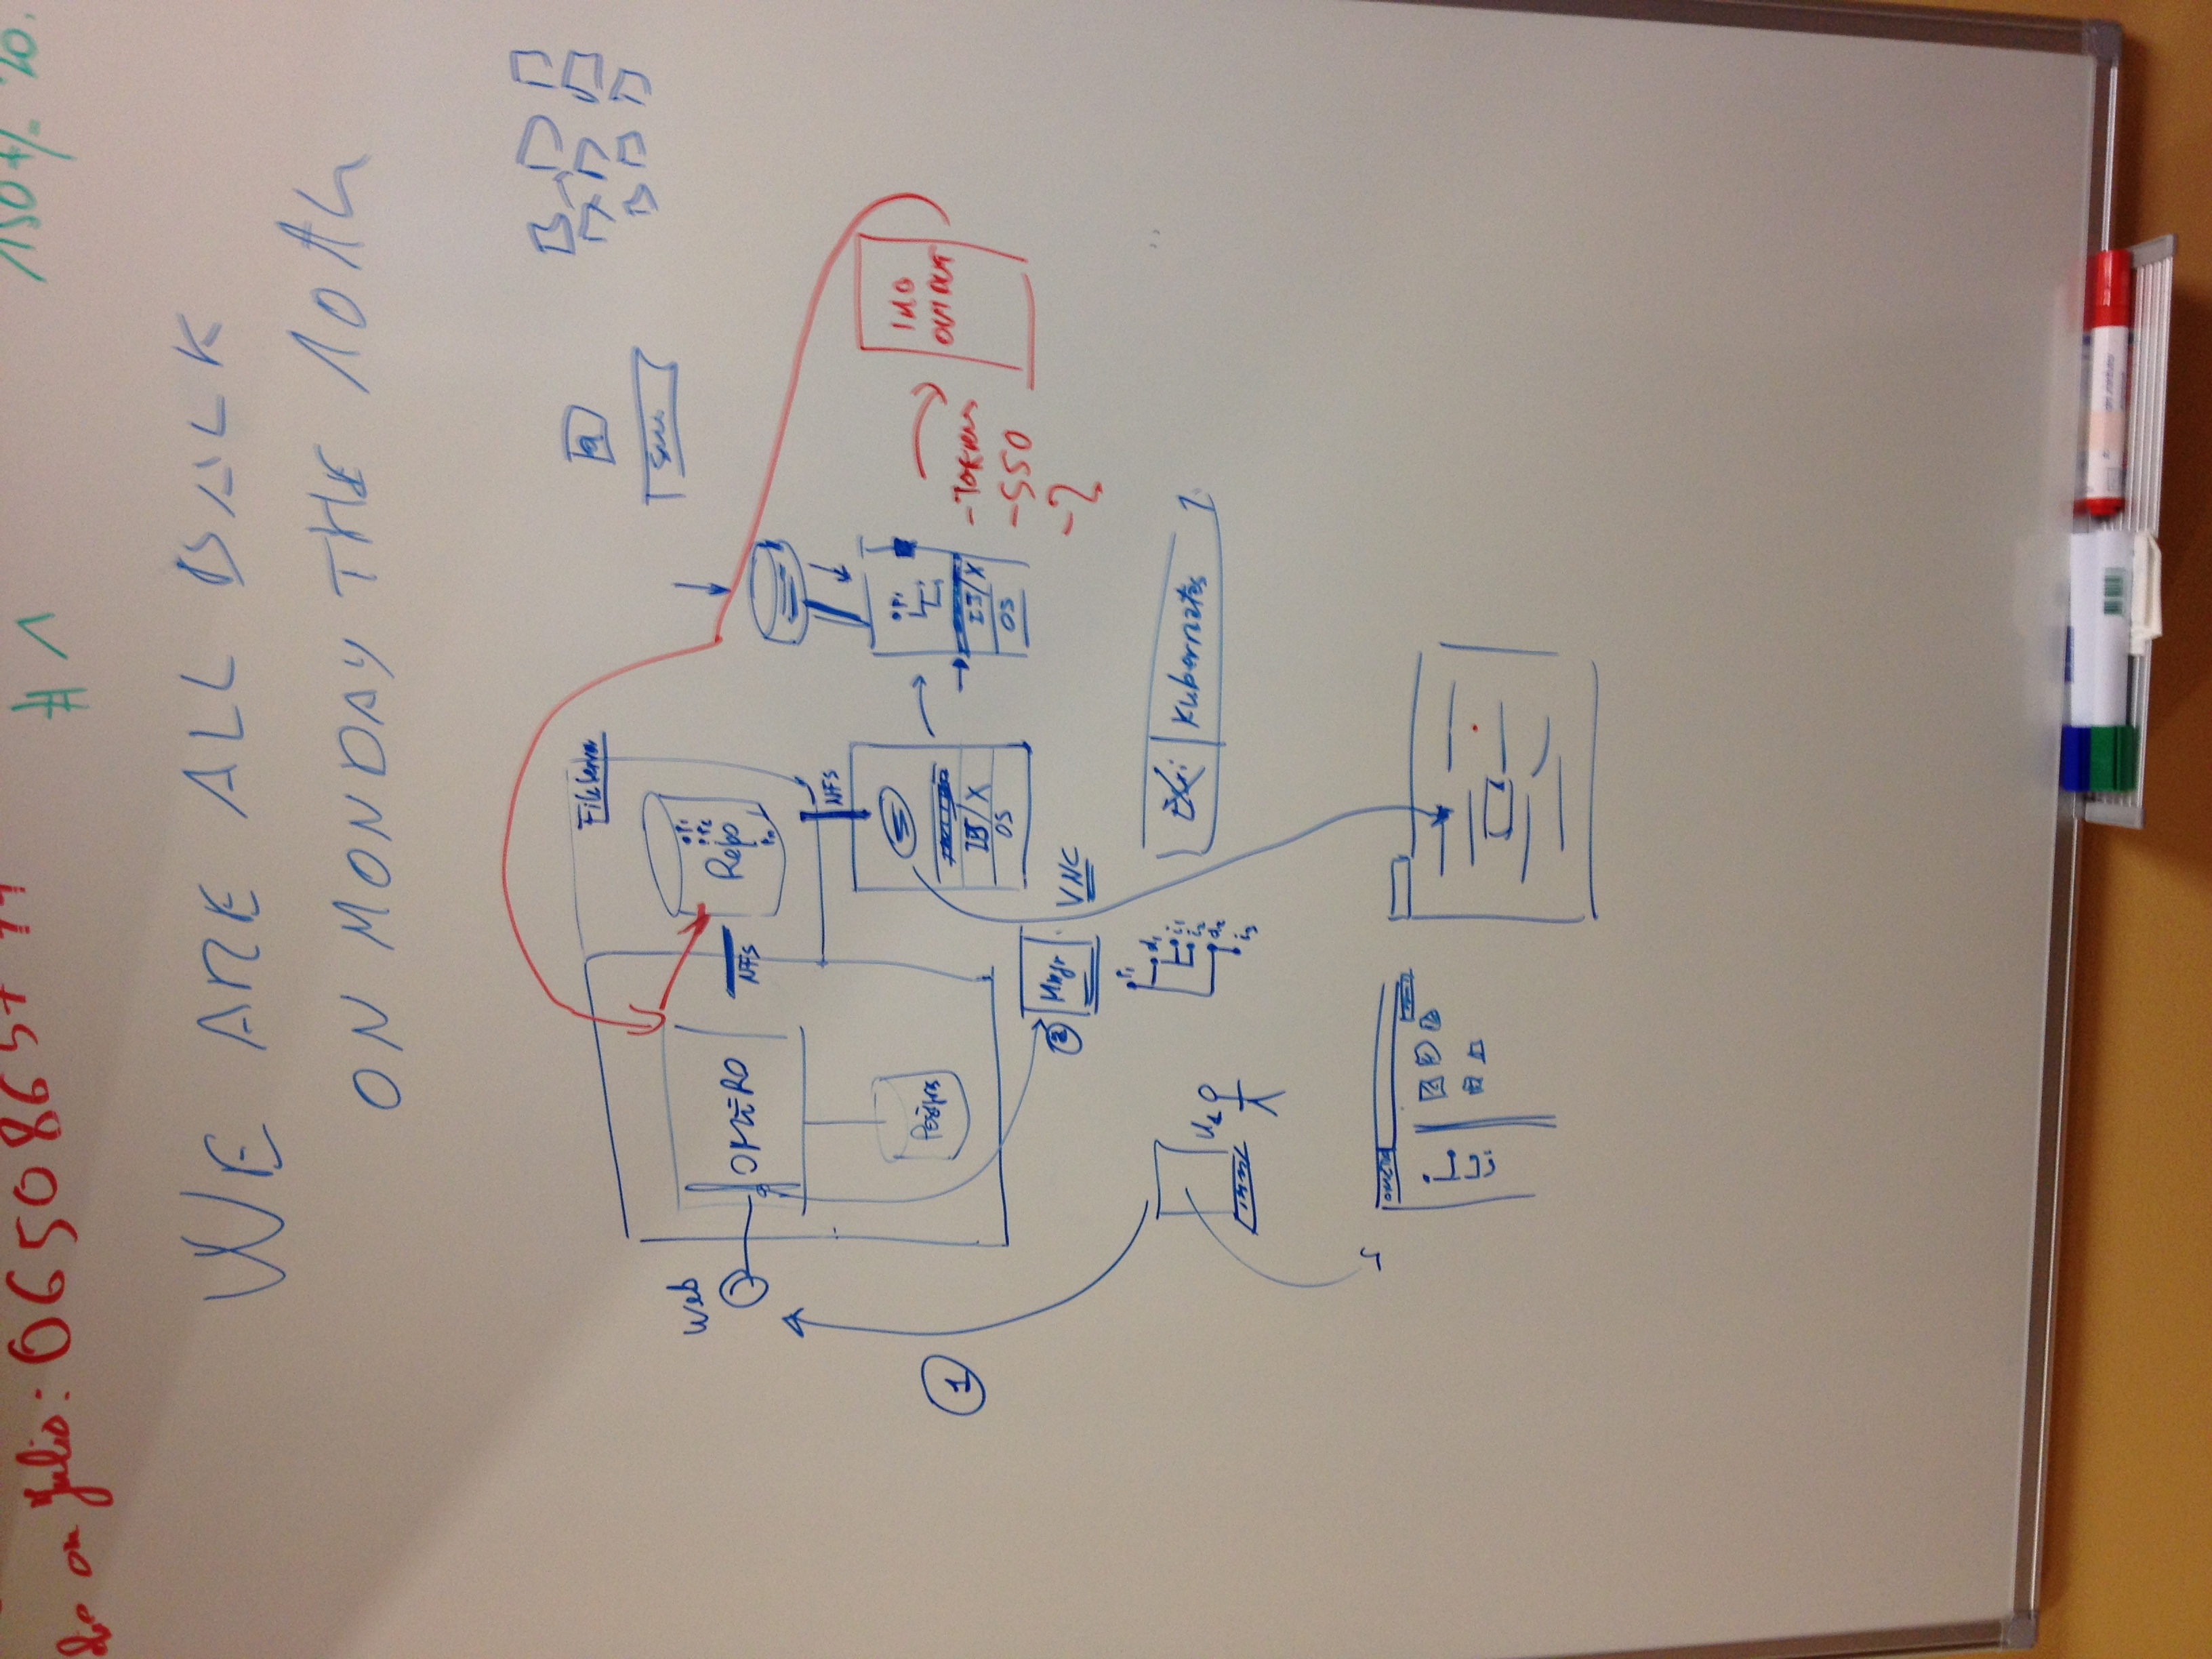 on Julio: 0650865
# 1
150 +/- 20.
WE ARE ALL BACK
ON MONDAY THE 10th
FileServer
Web
OMERO
NFS
Repo
P1
P2
Pn
NFS
Postgres
1
IJ/X
OS
P1
IJ/X
OS
- Tokens
- SSO
- ?
IMG
OUTPUT
2
Mngr
VNC
P1
d1
i1
i2
d2
i3
Kubernetes
U1
OMERO